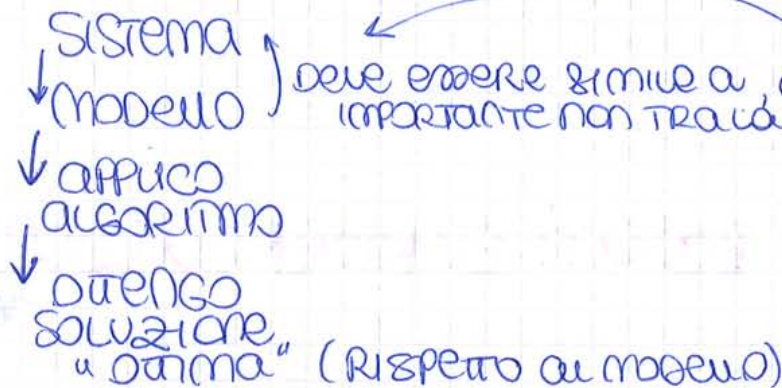 SISTEMA
MODELLO
DEVE ESSERE SIMILE A
IMPORTANTE NON
APPLICO
ALGORITMO
OTTENGO
SOLUZIONE
"OTTIMA" (RISPETTO AL MODELLO)